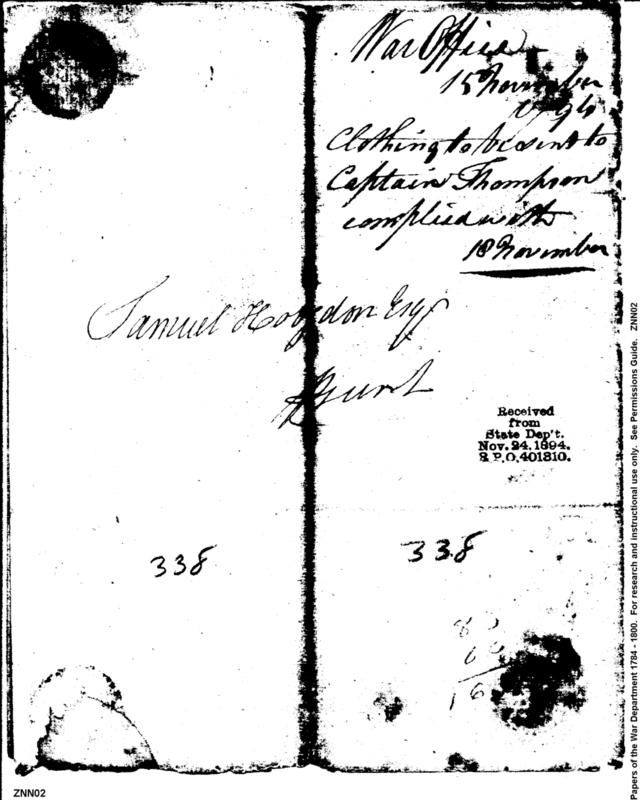 War Office
15 November
1794
Clothing to be sent to
Captain Thompson
complied with
18 November
Samuel Hodgdon Esqr
Received
from
State Dep't.
Nov. 24, 1894.
R.P.O. 401810.
338
338
16
Papers of the War Department 1784 - 1800. For research and instructional use only. See Permissions Guide. ZNN02
ZNN02